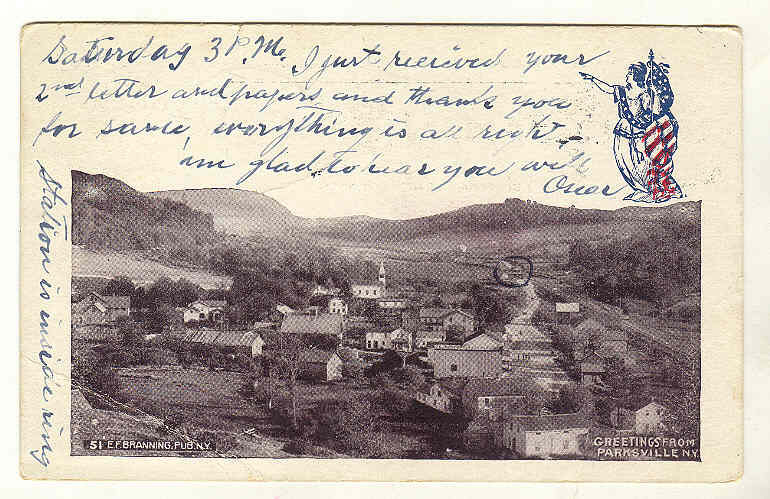 Saturday 3 P.M. I just received your
2nd letter and papers and thank you
for same, everything is all right
am glad to hear you well
Station is inside ring
51 E.F. BRANNING, PUB. N.Y.
GREETINGS FROM
PARKSVILLE N.Y.